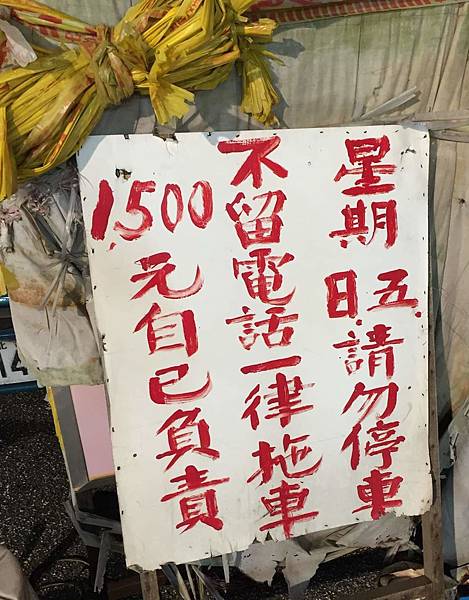 星期五.日.請勿停車
不留電話一律拖車
1,500元自已負責
14